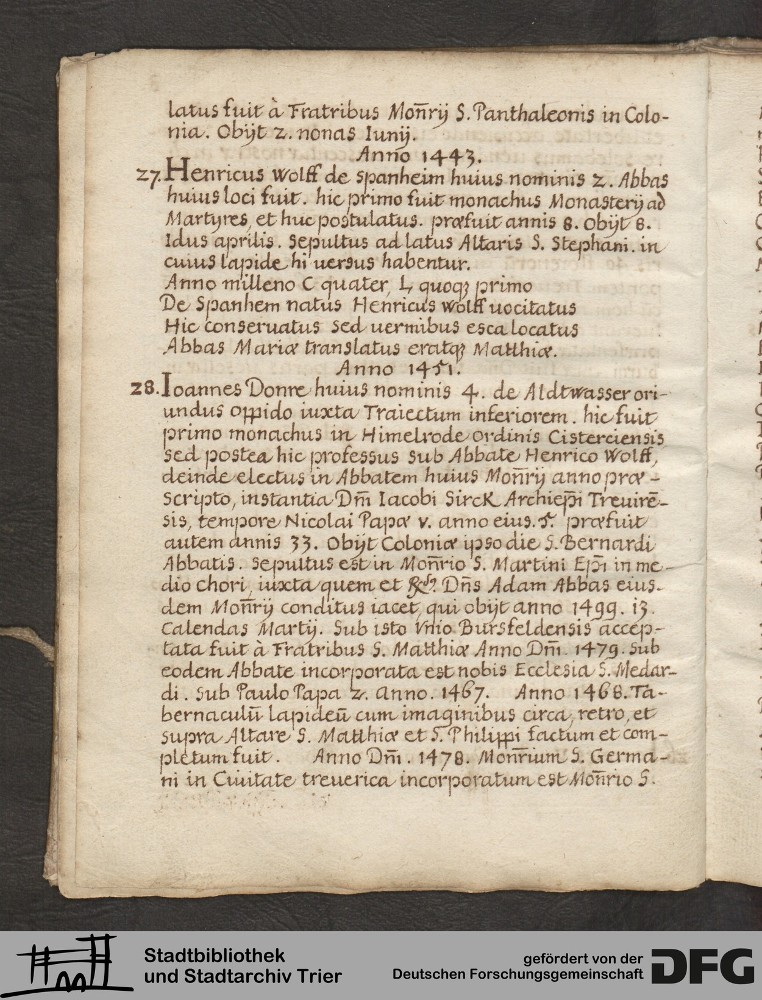 latus fuit à Fratribus Moñrij S. Panthaleonis in Colo-
nia. Obijt 2. nonas Iunij.
Anno 1443.
27. Henricus Wolff de spanheim huius nominis 2. Abbas
huius loci fuit. hic primo fuit monachus Monasterij ad
Martyres, et huc postulatus. præfuit annis 8. Obijt 8.
Idus aprilis. Sepultus ad latus Altaris S. Stephani. in
cuius lapide hi uersus habentur.
Anno milleno C quater, L quoqꝫ primo
De Spanhem natus Henricus Wolff uocitatus
Hic conseruatus sed uermibus esca locatus
Abbas Mariæ translatus eratqꝫ Matthiæ.
Anno 1451.
28. Ioannes Donre huius nominis 4. de Aldtwasser ori-
undus Oppido iuxta Traiectum inferiorem. hic fuit
primo monachus in Himelrode Ordinis Cisterciensis
sed postea hic professus sub Abbate Henrico Wolff,
deinde electus in Abbatem huius Moñrij anno præ-
scripto, instantia Dm̃ Iacobi Sirck Archiep̃i Treuirẽ-
sis, tempore Nicolai Papæ v. anno eius. 5. præfuit
autem annis 33. Obijt Coloniæ ipso die S. Bernardi
Abbatis. Sepultus est in Moñrio S. Martini Ep̃i in me-
dio chori, iuxta quem et Dñs Adam Abbas eius-
dem Moñrij conditus iacet, qui obijt anno 1499. 13.
Calendas Martij. Sub isto Vnio Bursfeldensis accep-
tata fuit à Fratribus S. Matthiæ Anno Dm̃. 1479. Sub
eodem Abbate incorporata est nobis Ecclesia S. Medar-
di. Sub Paulo Papa 2. Anno. 1467. Anno 1468. Ta-
bernaculũ lapideũ cum imaginibus circa, retro, et
supra Altare S. Matthiæ et S. Philippi factum et com-
pletum fuit. Anno Dm̃. 1478. Moñrium S. Germa-
ni in Ciuitate treuerica incorporatum est Moñrio S.
Stadtbibliothek
und Stadtarchiv Trier
gefördert von der
Deutschen Forschungsgemeinschaft
DFG